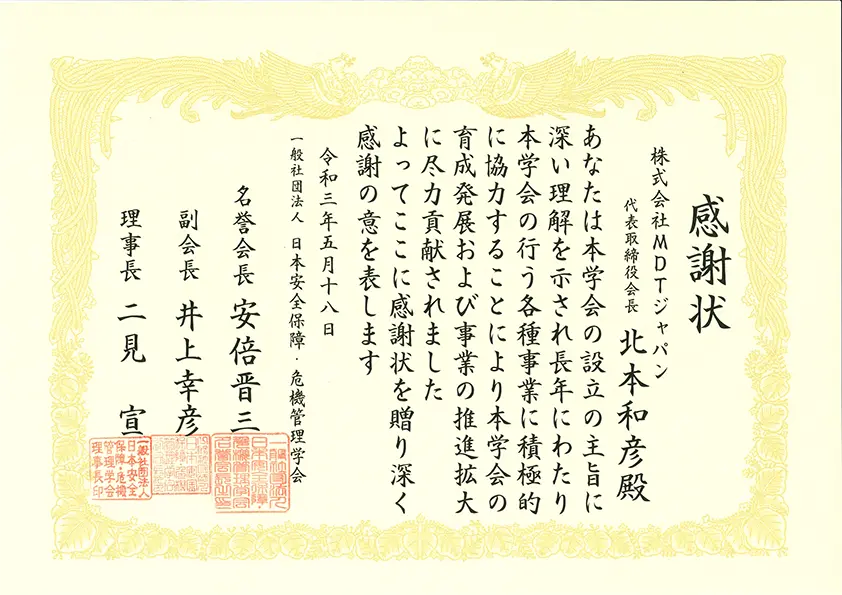 感謝状
株式会社MDTジャパン
代表取締役会長 北本和彦殿
あなたは本学会の設立の主旨に
深い理解を示され長年にわたり
本学会の行う各種事業に積極的
に協力することにより本学会の
育成発展および事業の推進拡大
に尽力貢献されました
よってここに感謝状を贈り深く
感謝の意を表します
令和三年五月十八日
一般社団法人 日本安全保障・危機管理学会
名誉会長 安倍晋三
副会長 井上幸彦
理事長 二見 宣
一般社団法人
日本安全
保障・危機
管理学会
理事長印